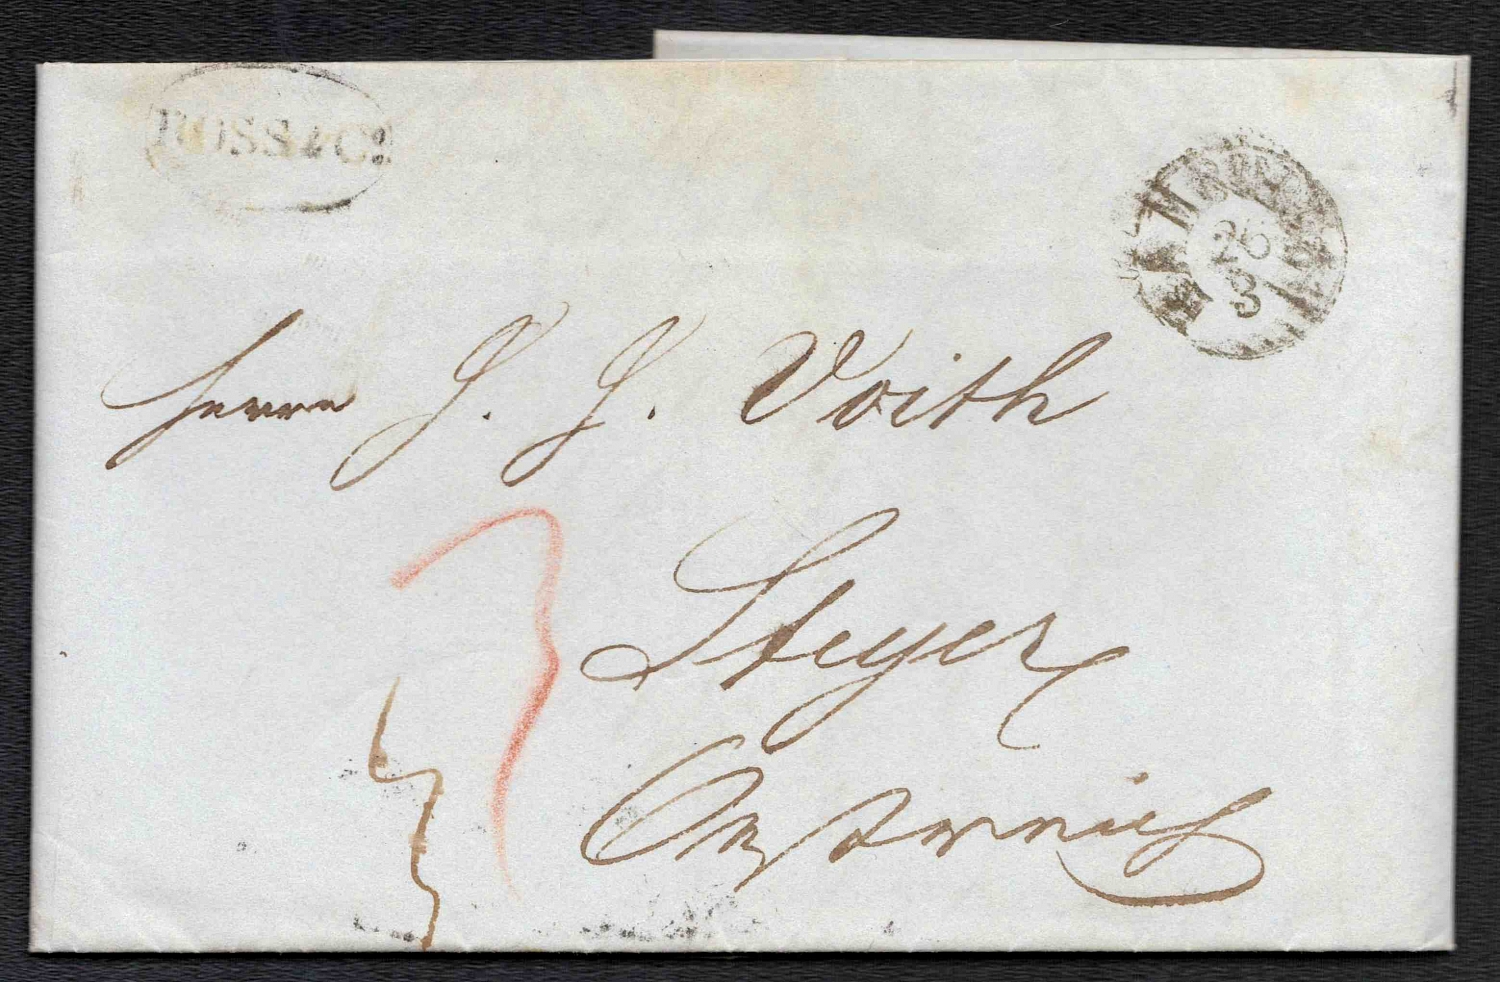 ROSS & Co.
HAMBURG
26
3
Herrn J. J. Voith
3
Steyer
Oesterreich